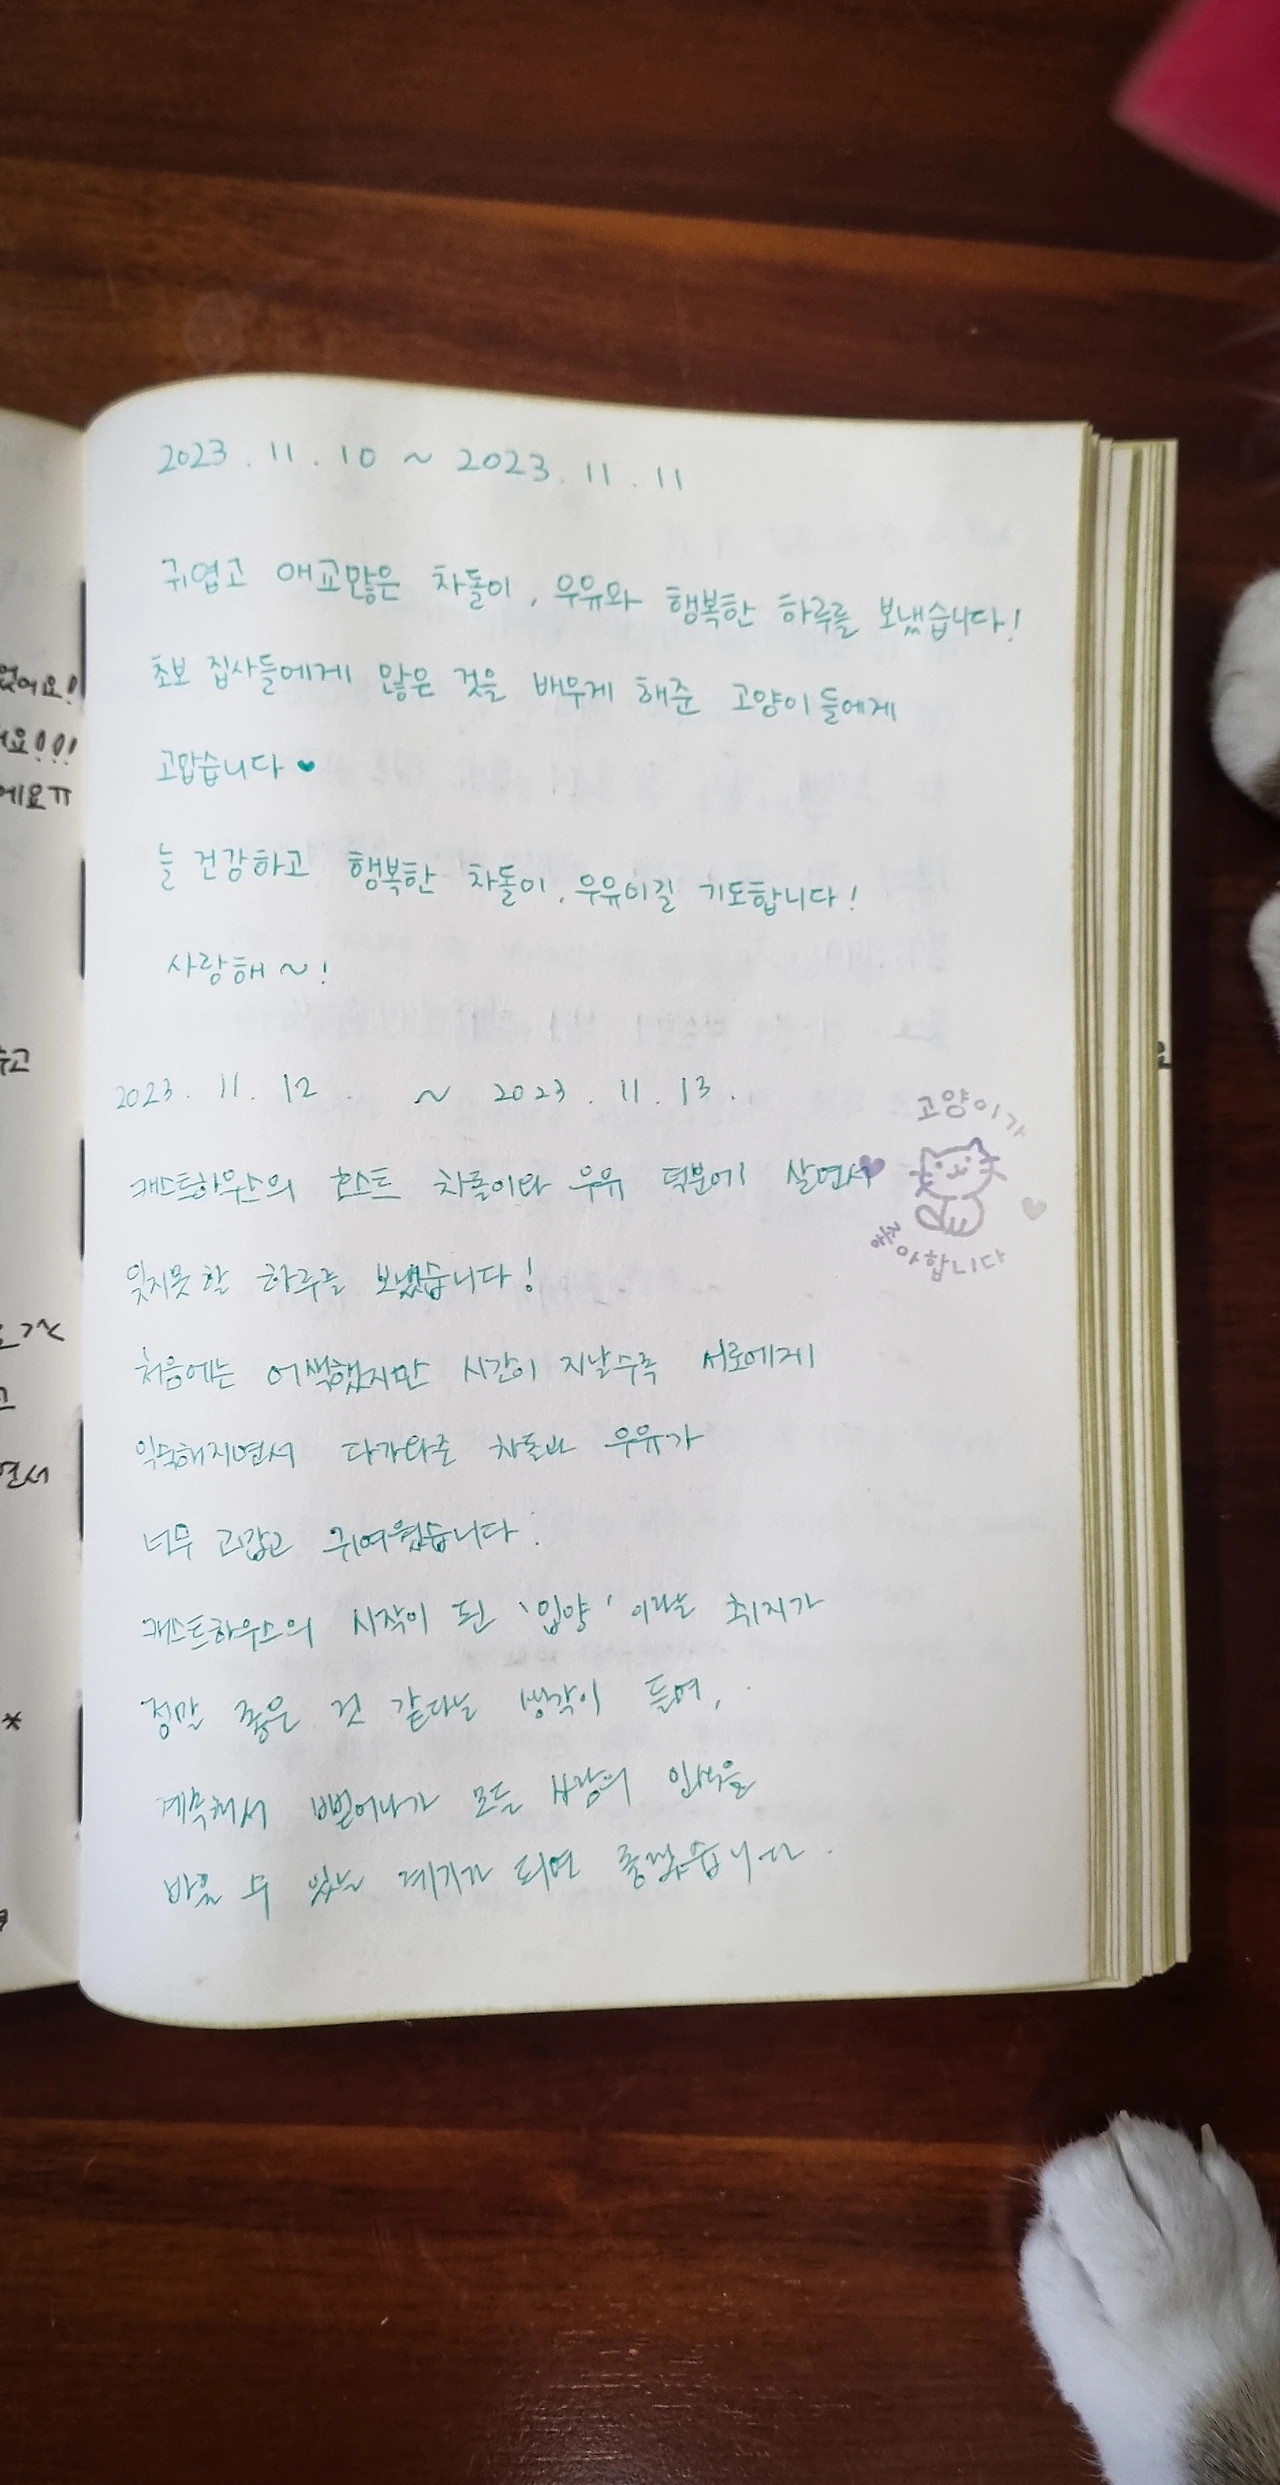 2023.11.10 ~ 2023.11.11
귀엽고 애교많은 차돌이, 우유와 행복한 하루를 보냈습니다!
초보 집사들에게 많은 것을 배우게 해준 고양이들에게
고맙습니다♥
늘 건강하고 행복한 차돌이, 우유이길 기도합니다!
사랑해~!
2023. 11. 12. ~ 2023. 11. 13.
캐스트하우스의 호스트 차돌이와 우유 덕분에 살면서
잊지못할 하루를 보냈습니다!
고양이가
좋아합니다
처음에는 어색했지만 시간이 지날수록 서로에게
익숙해지면서 다가와준 차돌과 우유가
너무 고맙고 귀여웠습니다.
캐스트하우스의 시작이 된 '입양'이라는 취지가
정말 좋은 것 같다는 생각이 들어,
계속해서 뻗어나가 모든 사람의 인식을
바꿀 수 있는 계기가 되면 좋겠습니다.
었어요!
요!!!
에요ㅠ
고
면서
*